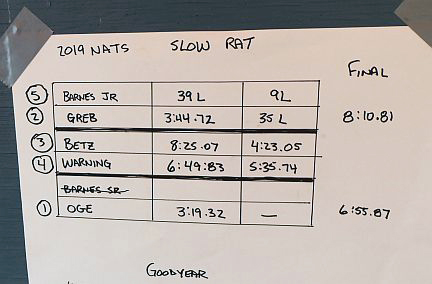 2019 NATS SLOW RAT
FINAL
5 BARNES JR 39 L 9L
2 GREB 3:44.72 35 L 8:10.81
3 BETZ 8:25.07 4:23.05
4 WARNING 6:49:83 5:35.74
BARNES SR
1 OGE 3:19.32 — 6:55.87
GOODYEAR